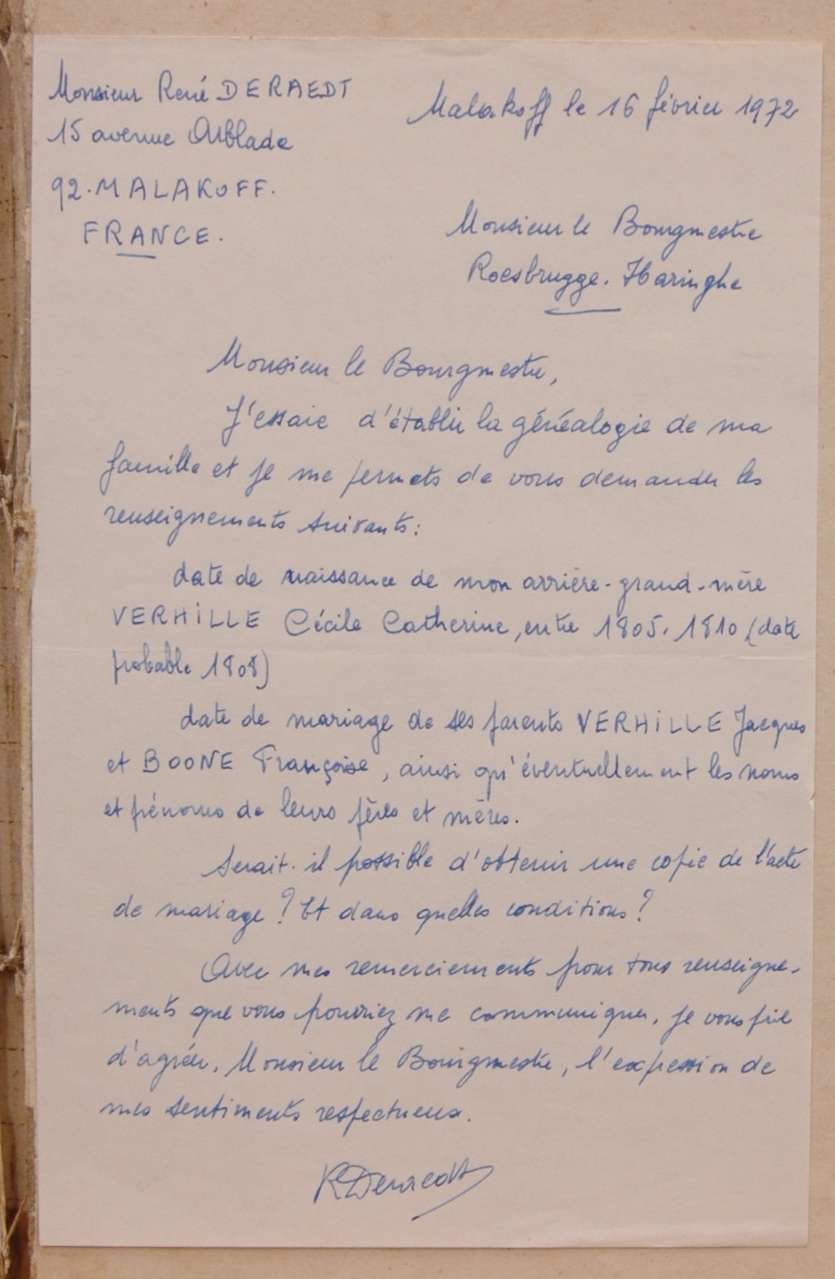 Monsieur René DERAEDT
15 avenue Arblade
92. MALAKOFF.
FRANCE.
Malakoff le 16 février 1972
Monsieur le Bourgmestre
Roesbrugge. Haringhe
Monsieur le Bourgmestre,
J'essaie d'établir la généalogie de ma
famille et je me permets de vous demander les
renseignements suivants :
date de naissance de mon arrière-grand-mère
VERHILLE Cécile Catherine, entre 1805. 1810 (date
probable 1808)
date de mariage de ses parents VERHILLE Jacques
et BOONE Françoise, ainsi qu'éventuellement les noms
et prénoms de leurs pères et mères.
Serait-il possible d'obtenir une copie de l'acte
de mariage ? Et dans quelles conditions ?
Avec mes remerciements pour tous renseigne-
ments que vous pourriez me communiquer, je vous prie
d'agréer, Monsieur le Bourgmestre, l'expression de
mes sentiments respectueux.
RDeraedt